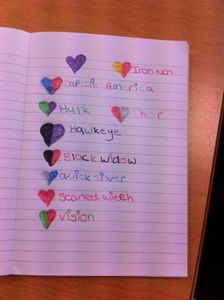 Iron Man
Captain America
Hulk
Hawkeye
Black widow
Quick silver
Scarlett witch
Vision